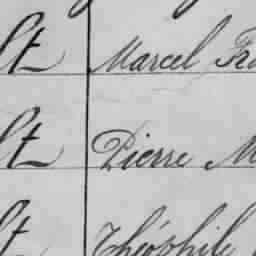 St Marcel Fr
St Pierre M
St Théophile